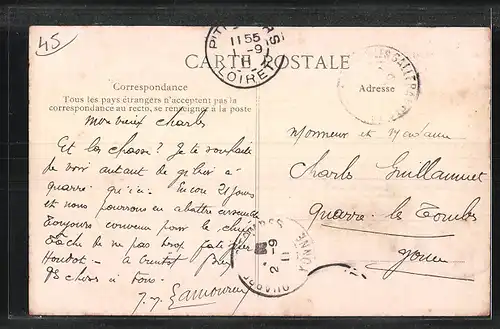 45
PITHIVIERS
11 55
1 - 9
11
LOIRET
CARTE POSTALE
Correspondance
Tous les pays étrangers n'acceptent pas la
correspondance au recto, se renseigner à la poste
Adresse
Mon vieux Charles
Et la chasse ? Je te souhaite
de voir autant de gibier à
Quarré qu'ici. Encore 21 jours
et nous pourrons en abattre ensemble
Toujours convenu pour le
Tâche de ne pas trop fatiguer
à bientôt
choses à tous.
J. Lamoureux
Monsieur et Madame
Charles Guillaumet
Quarré-les-Tombes
Yonne
QUARRÉ
2 - 9
11
YONNE